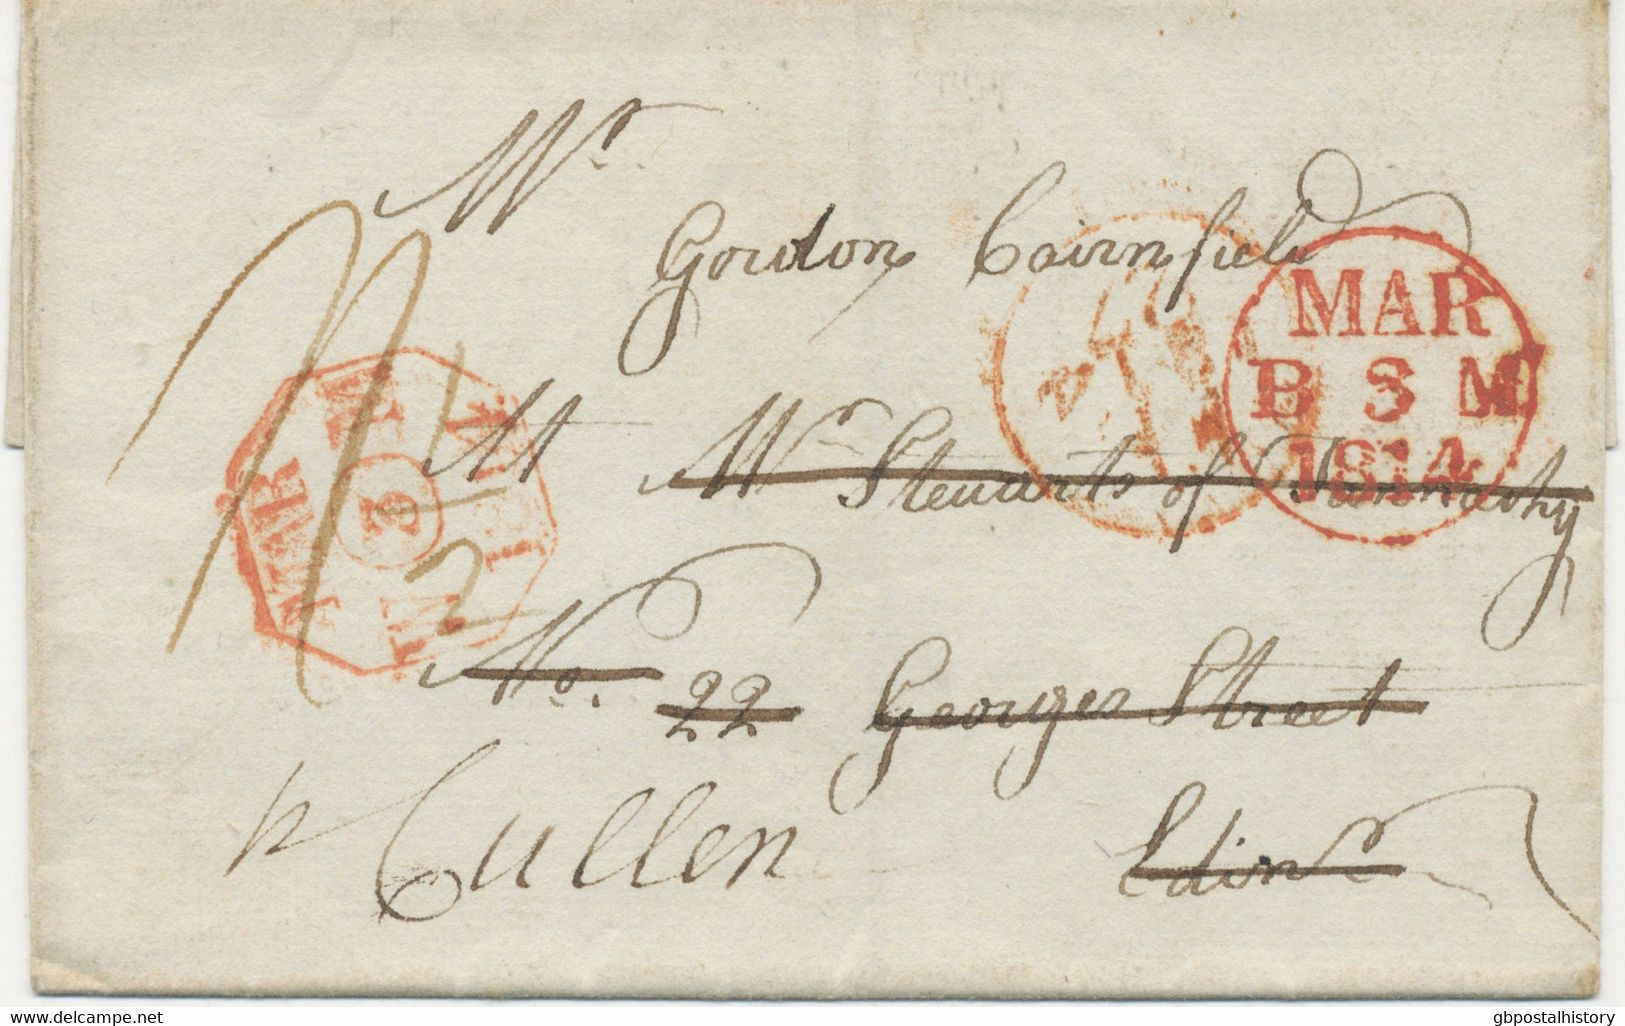 Mr.
Gordon Cairnfield
At Mr Stewarts of Tannachy
No. 22 Georges Street
Edinr
pr Cullen
MAR
B 3 M
1814
MAR
3
www.delcampe.net
gbpostalhistory